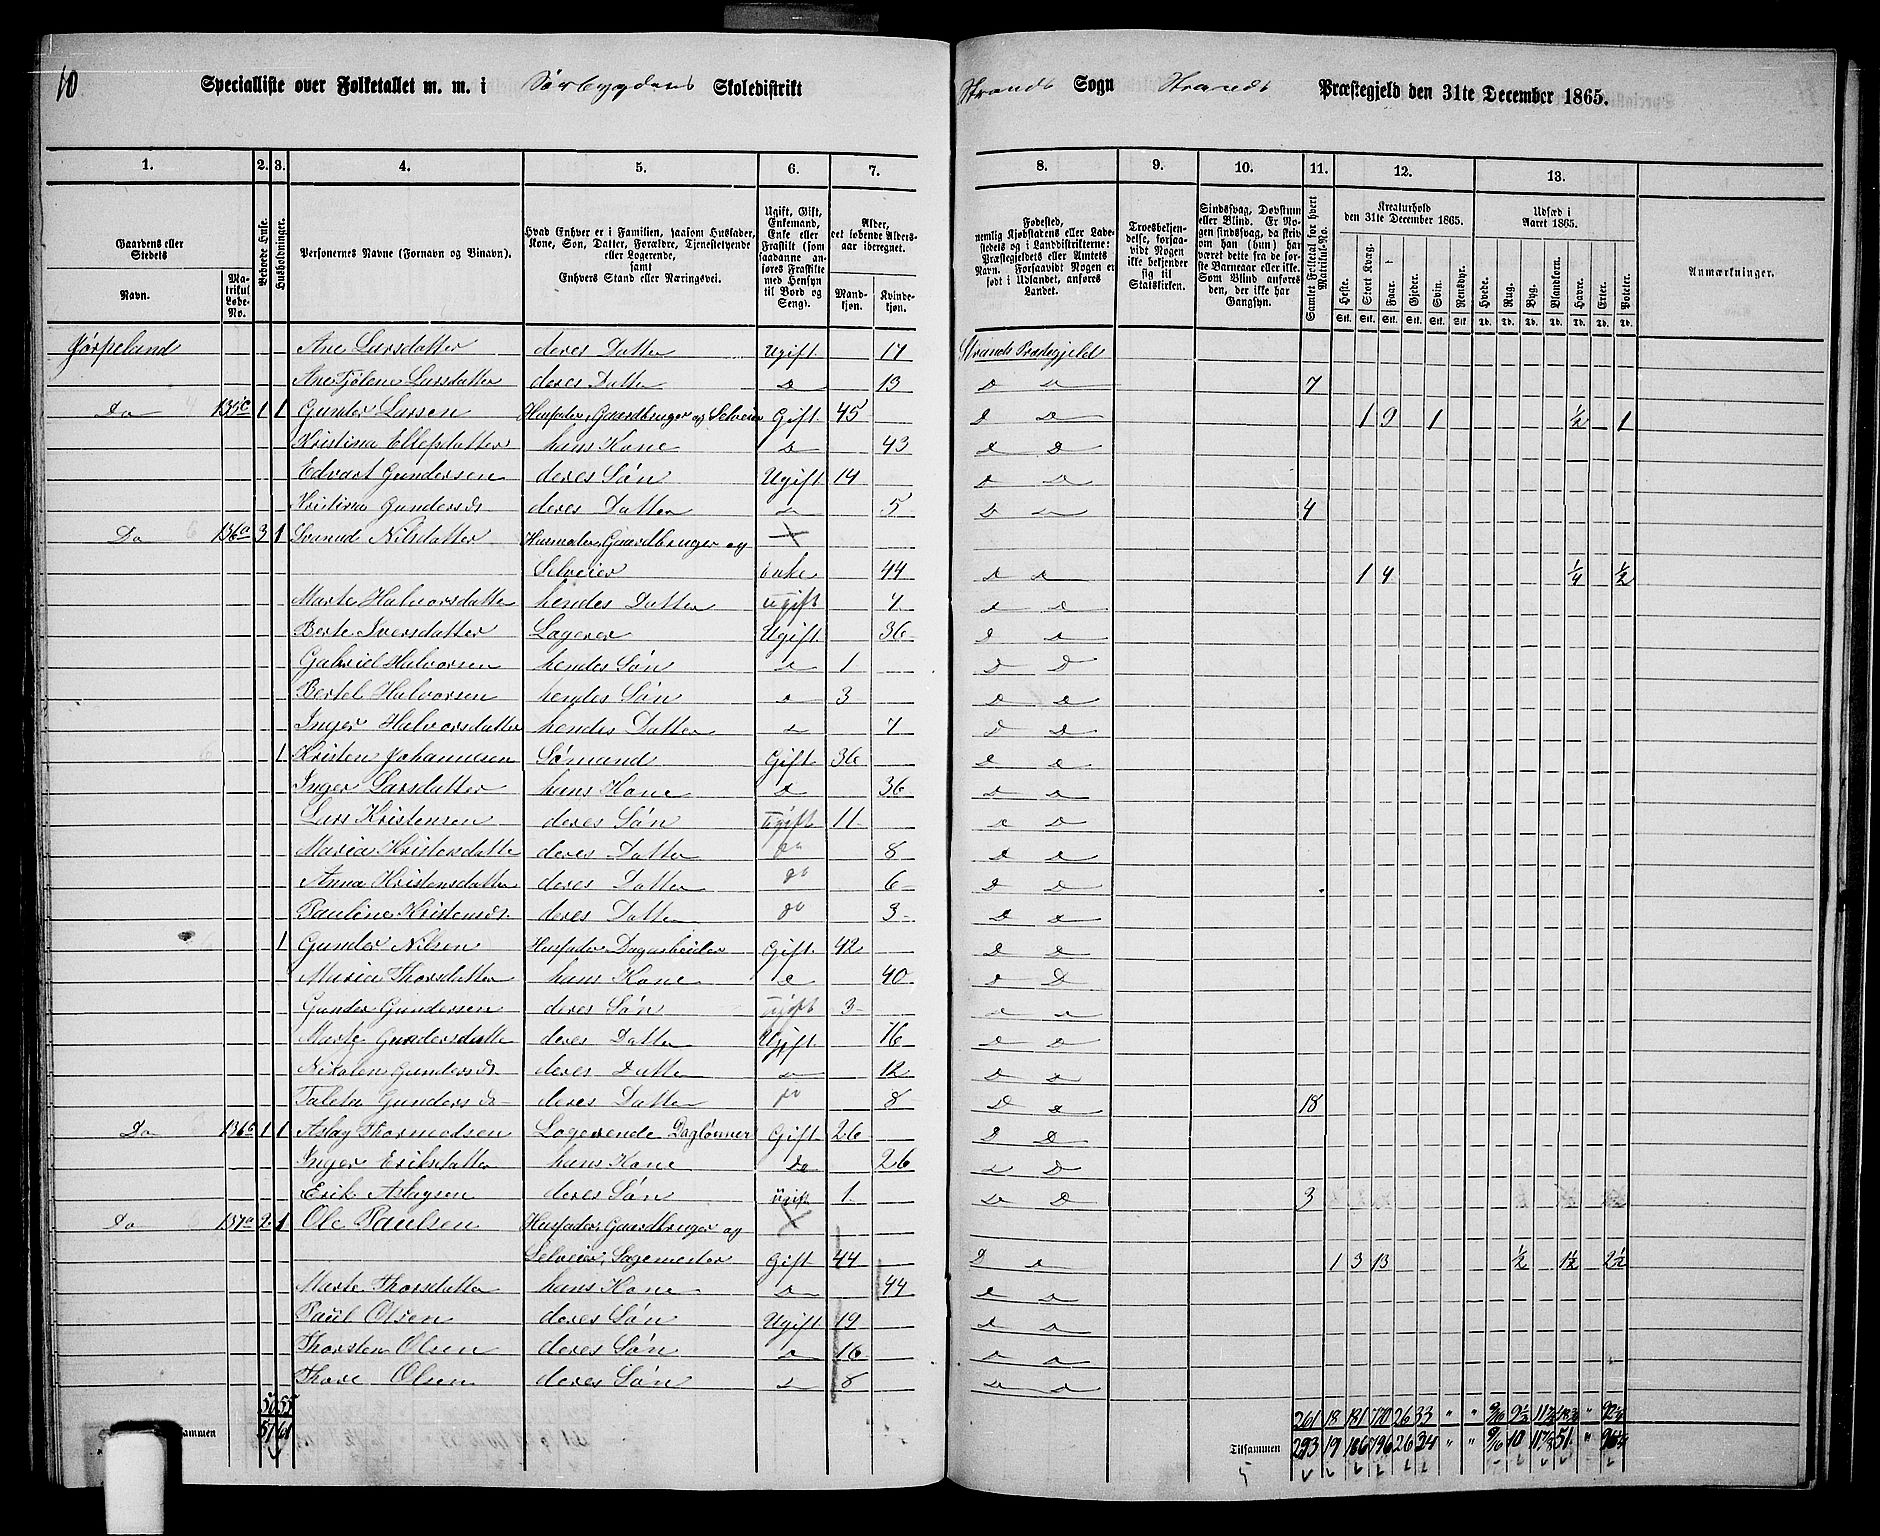 10
Specialliste over Folketallet m. m. i Sørbygdens Skoledistrikt
Strands Sogn Strands Præstegjeld den 31te December 1865.
1. 2. 3. 4. 5. 6. 7. 8. 9. 10. 11. 12. 13.
Gaardens eller Stedets
Navn.
Matrikul Løbe-No.
Beboede Huse.
Husholdninger.
Personernes Navne (Fornavn og Binavn).
Hvad Enhver er i Familien, saasom Husfader, Kone, Søn, Datter, Forældre, Tjenestetyende eller Logerende, samt Enhvers Stand eller Næringsvei.
Ugift, Gift, Enkemand, Enke eller Fraskilt (som saadanne anføres Fraskilte med Hensyn til Bord og Seng).
Alder, det løbende Aldersaar iberegnet.
Mandkjøn. Kvindekjøn.
Fødested, nemlig Kjøbstadens eller Ladestedets og i Landdistrikterne: Præstegjeldets eller Amtets Navn. Forsaavidt Nogen er født i Udlandet, anføres Landet.
Troesbekjendelse, forsaavidt Nogen ikke bekjender sig til Statskirken.
Sindssvag, Døvstum eller Blind. Er Nogen sindssvag, da skriv om han (hun) har været dette fra de første Barneaar eller ikke. Som Blind anføres den, der ikke har Gangsyn.
Samlet Folketal for hvert Matrikul-No.
Kreaturhold den 31te December 1865.
Heste. Stort Kvæg. Faar. Gjeder. Svin. Rensdyr.
Udsæd i Aaret 1865.
Hvede. Rug. Byg. Blandkorn. Havre. Erter. Poteter.
Stk. Stk. Stk. Stk. Stk. Stk. Td. Td. Td. Td. Td. Td. Td.
Anmærkninger.
Jørpeland Ane Larsdatter deres Datter Ugift 17 Strands Præstegjeld
Ane Tjølene Larsdatter deres Datter d 13 d d 7
Do 135c 1 1 Gunder Larsen Husfader, Gaardbruger og Selveier Gift 45 d d 1 9 1 ½ 1
Kristina Ellefsdatter hans Kone d 43 d d
Edvart Gundersen deres Søn Ugift 14 d d
Kristina Gundersd. deres Datter d 5 d d 4
Do 136a 3 1 Nilsdatter Husmoder, Gaardbruger og
Selveier Enke 44 d d 1 4 ¼ ½
Marte Halvorsdatter hendes Datter Ugift 7 d d
Berte Iversdatter Logerer Ugift 36 d d
Gabriel Halvorsen hendes Søn d 1 d d
Bertel Halvorsen hendes Søn d 3 d d
Inger Halvorsdatter hendes Datter d 7 d d
1 Kristen Johannesen Sømand Gift 36 d d
Inger Larsdatter hans Kone d 36 d d
Lars Kristensen deres Søn Ugift 11 d d
Maria Kristensdatte deres Datter do 8 d d
Anna Kristensdatter deres Datter do 6 d d
Pauline Kristensd. deres Datter do 3 d d
1 Gunder Nilsen Husfader, Dagarbeider Gift 42 d d
Maria Thorsdatter hans Kone d 40 d d
Gunder Gundersen deres Søn Ugift 3 d d
Marte Gundersdatte deres Datter Ugift 16 d d
Nikolen Gundersd. deres Datter d 12 d d
Taleta Gundersd deres Datter do 8 d d 18
Do 136c 1 1 Aslag Thormodsen Logerende Daglønner Gift 26 d d
Inger Eriksdatter hans Kone do 26 d d
Erik Aslagsen deres Søn Ugift 1 d d 3
Do 137a 2 1 Ole Paulsen Husfader, Gaardbruger og
Selveier, Sagemester Gift 44 d d 1 3 13 ½ 1½ 2½
Marte Thorsdatter hans Kone d 44 d d
Paul Olsen deres Søn Ugift 19 d d
Thorsten Olsen deres Søn d 16 d d
Thore Olsen deres Søn d 8 d d
50 55 261 18 181 770 26 33 " "
57 61 Tilsammen 293 19 186 796 26 34 " "